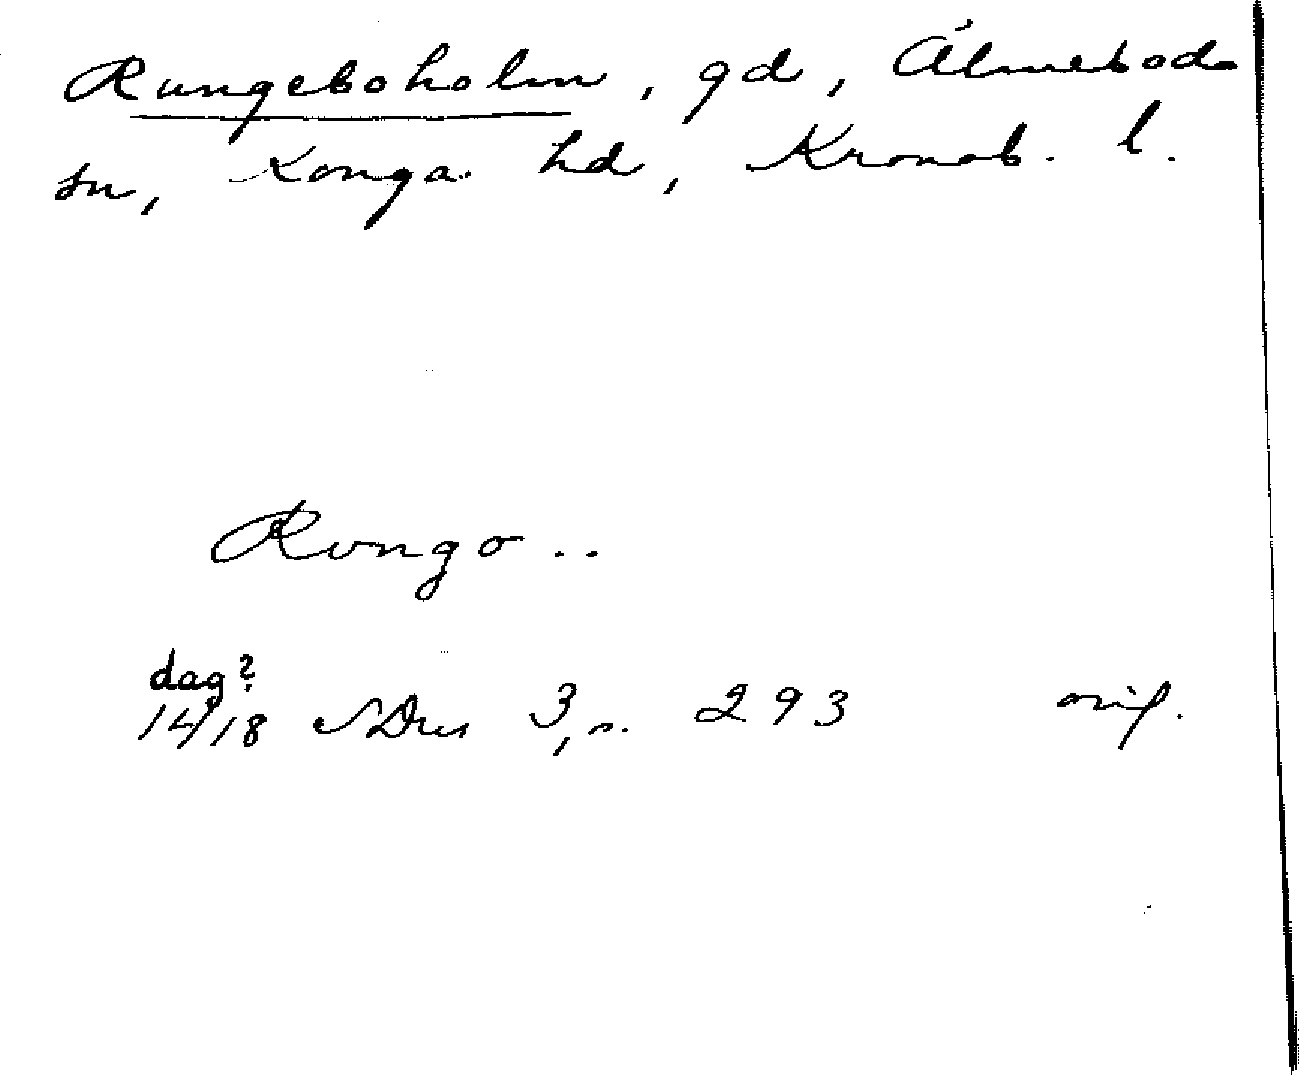 Rungeboholm, gd, Älmeboda
sn, Konga hd, Kronob. l.
Rungo..
dag?
14/18 SDns 3, s. 293 orig.